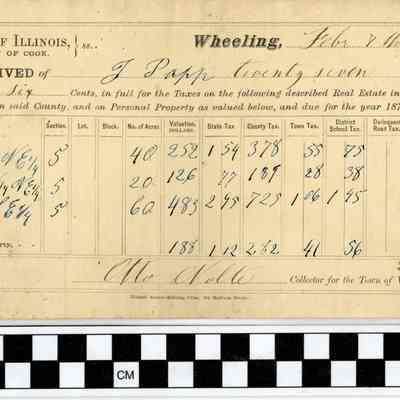 F ILLINOIS, } ss. Wheeling, Febr 7
Y OF COOK.
IVED of J Papp twenty seven
six Cents, in full for the Taxes on the following described Real Estate in
n said County, and on Personal Property as valued below, and due for the year 187
Section. Lot. Block. No. of Acres. Valuation. DOLLARS. State Tax. County Tax. Town Tax. District School Tax. Delinquent Road Tax.
NE¼ 5 40 252 1 54 3 78 55 75
NE¼ 5 20 126 77 1 89 28 38
E¼ 5 60 483 2 95 7 25 1 06 1 45
rty. 188 1 12 2 82 41 56
Otto Nolte Collector for the Town of W
CM